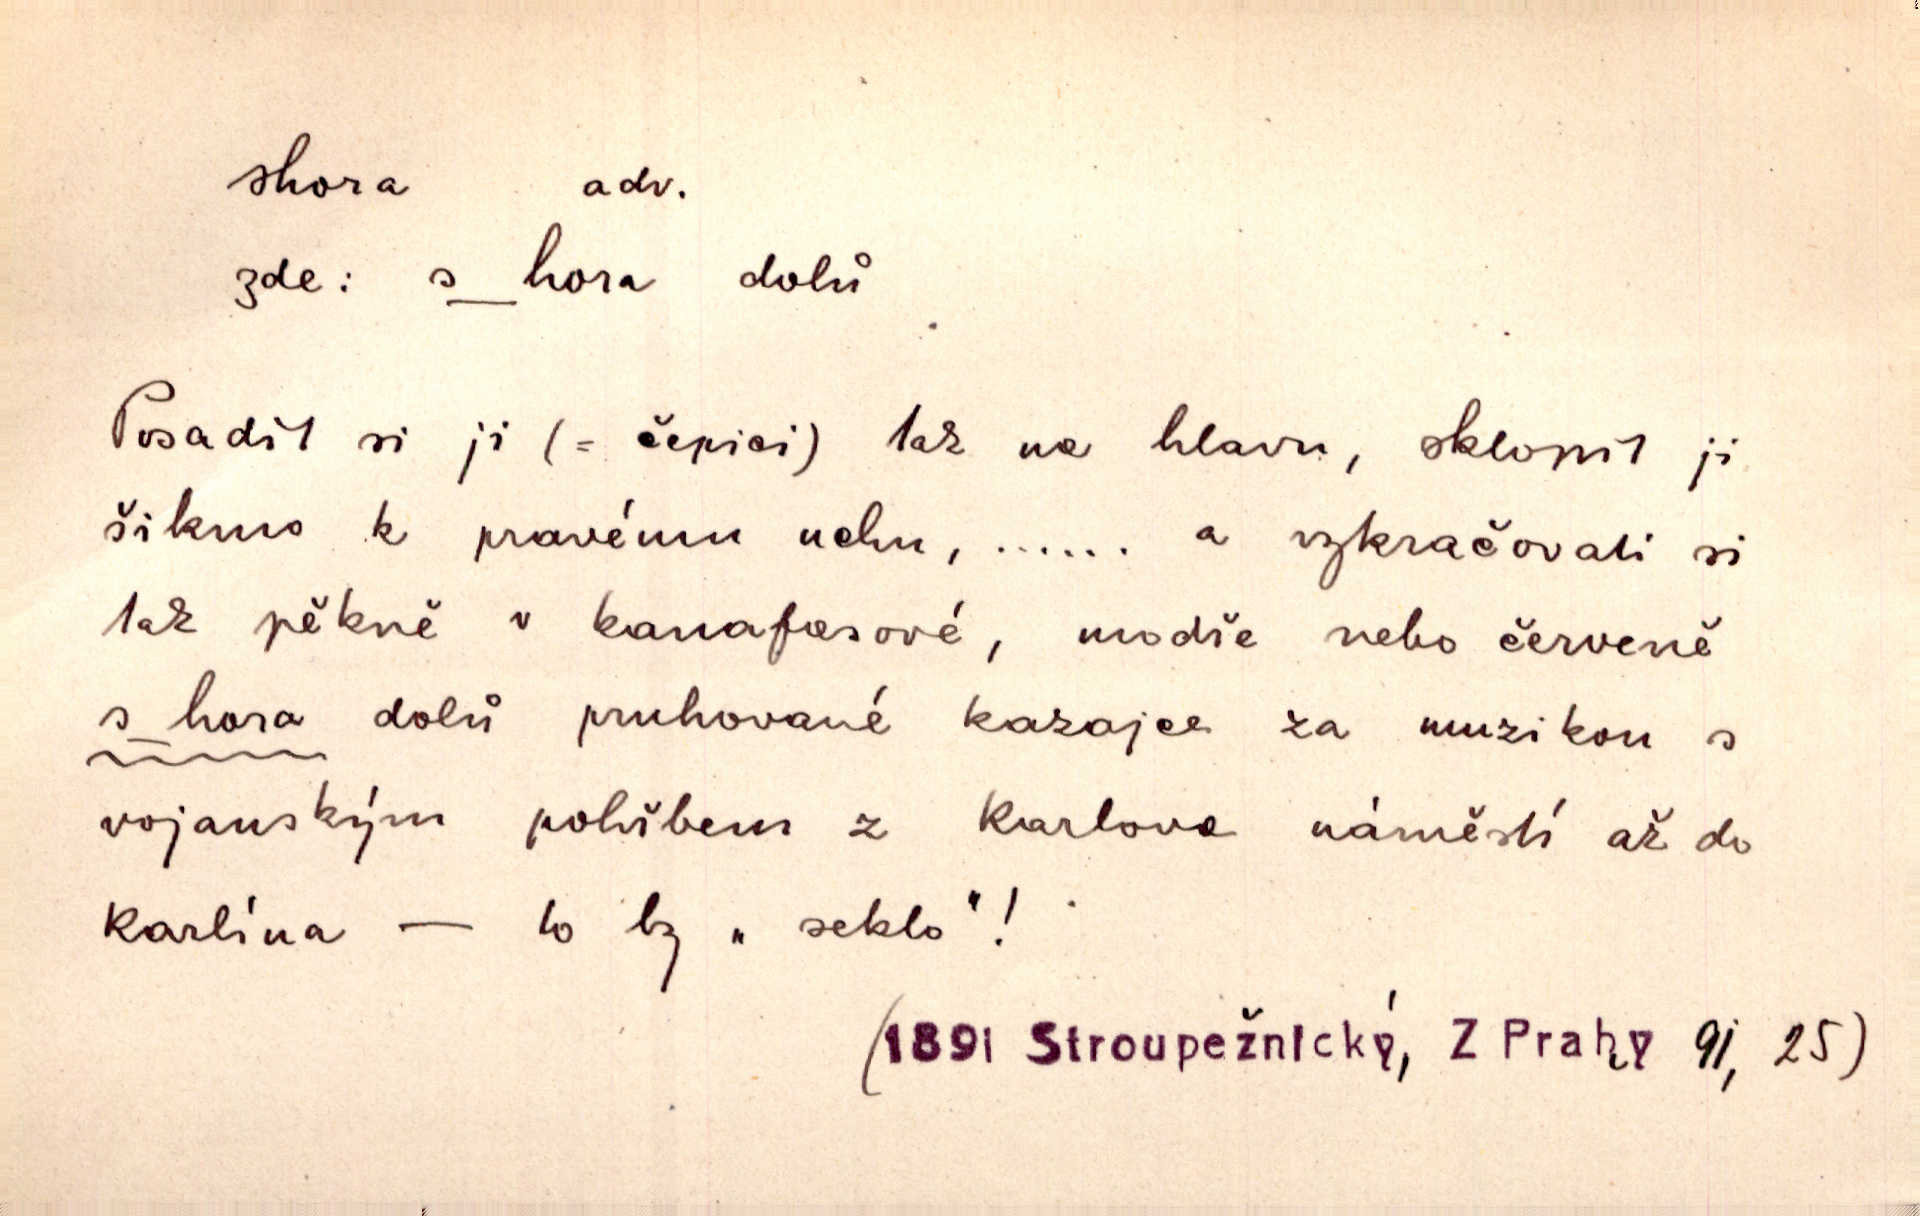 shora adv.
zde: s_hora dolů
Posadit si ji (= čepici) tak na hlavu, sklopit ji
šikmo k pravému uchu, ...... a vykračovati si
tak pěkně v kanafasové, modře nebo červeně
s_hora dolů pruhované kazajce za muzikou s
vojanským pohřbem z Karlova náměstí až do
Karlína — to by „seklo"!
(1891 Stroupežnický, Z Prahy 91, 25)